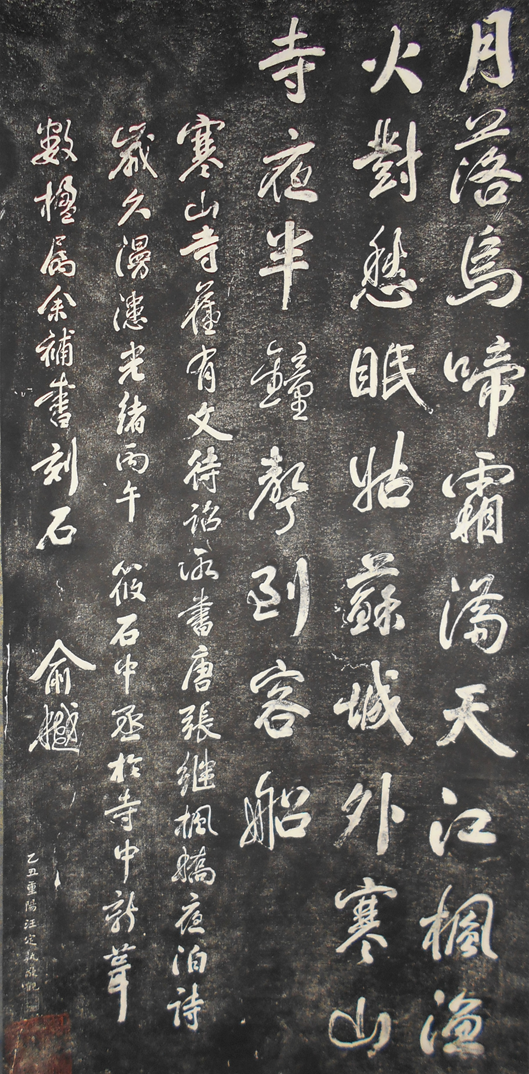 月落烏啼霜滿天江楓漁
火對愁眠姑蘇城外寒山
寺夜半鐘聲到客船
寒山寺舊有文待詔所書唐張繼楓橋夜泊詩
歲久漫漶光緒丙午筱石中丞於寺中新葺
數楹屬余補書刻石
俞樾
乙丑重陽汪定執觀